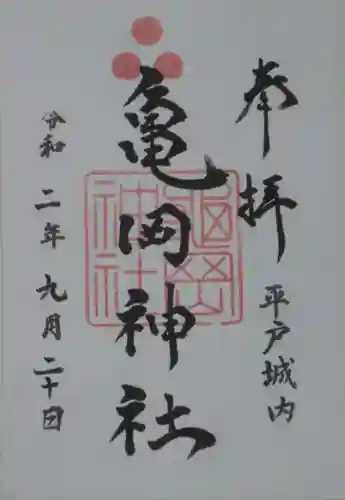 奉拝
平戸城内
亀岡神社
令和二年九月二十日
亀岡
神社